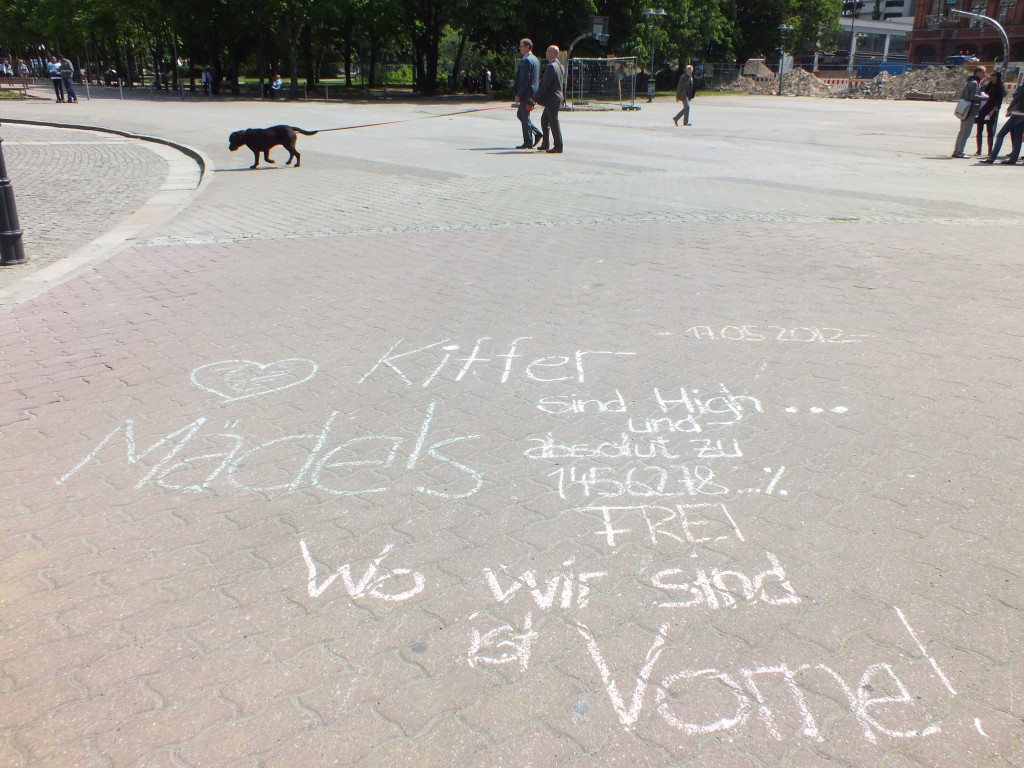 - 17.05.2012 -
Kiffer
Mädels
sind High ...
und
absolut zu
14562718...%
FREI
Wo wir sind
ist Vorne!